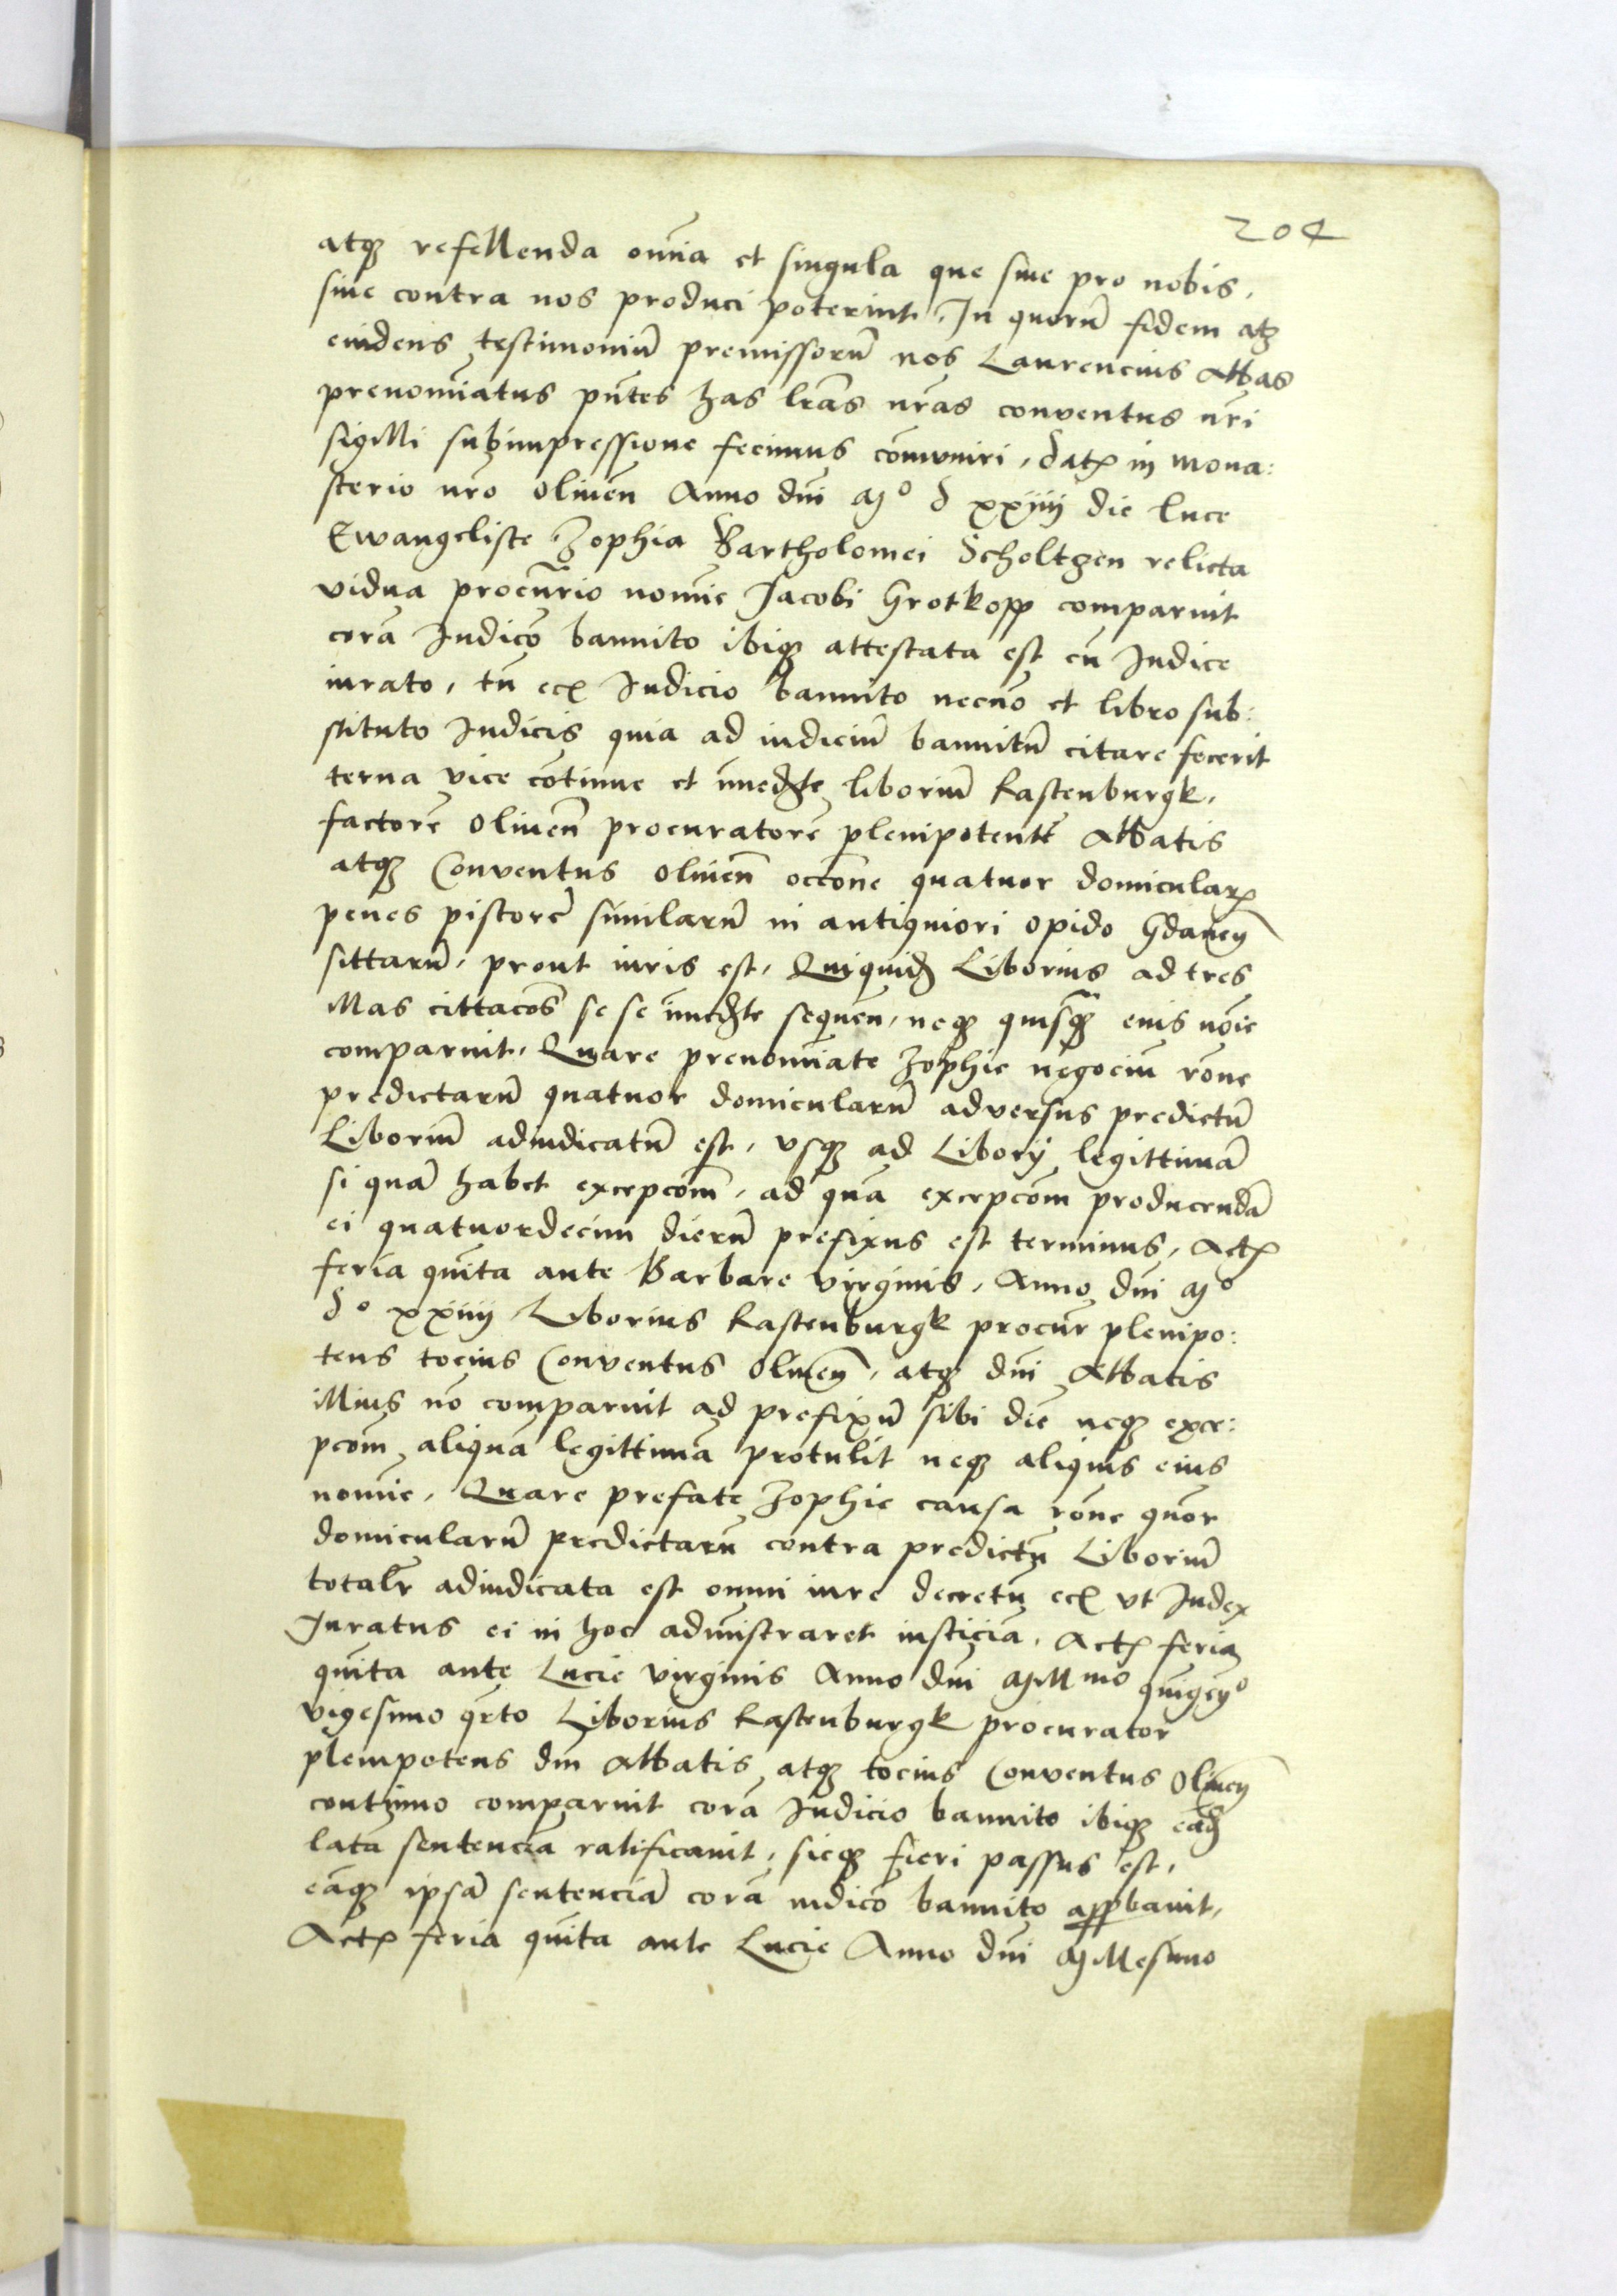 204
atq₃ refellenda om̄ia et singula que siue pro nobis,
siue contra nos produci poterint. In quorū fidem atq₃
euidens testimoniū premissorū nos Laurencius Abbas
prenomīatus pn̄tes has lr̄as nr̄as conventus nr̄i
sigilli subimpressione fecimus cōmuniri, datꝝ in mona:
sterio nr̄o Oliuen̄ Anno dn̄i Mº d xxiiij die Luce
Ewangeliste Zophia Bartholomei Scholtzen relicta
vidua procur̄rio nomīe Jacobi Grotkopp comparuit
corā Iudicō bannito ibiq₃ attestata est cū Iudice
iurato, tū ecꝫ Iudicio bannito necnō et libro sub:
stituto Iudicis quia ad iudiciū bannitū citare fecerit
terna vice cōtinue et īmed₃te liboriū Rastenburgk,
factorē Oliuen̄ procuratorē plenipotentē Abbatis
atq₃ Conventus Oliuen̄ occōne quatuor domicularꝝ
penes pistorē similarū in antiquiori Opido Gdanen̄
sittarū, prout iuris est, Quiquid₃ Liborius ad tres
illas cittacōs se se īmed₃te sequen̄, neq₃ quisq₃ eius nōie
comparuit, Quare prenomīate Zophie negociū rōne
predictarū quatuor domicularū adversus predictū
Liboriū adiudicatū est, vsq₃ ad Liborij legittimā
si quā habet excepcōm, ad quā excepcōm producendā
ei quatuordecim dierū prefixus est terminus, Actꝝ
feria quīta ante Barbare virginis, Anno dn̄i Mº
dº xxiiij Liborius Rastenburgk procur̄ plenipo:
tens tocius Conventus Oliuen̄, atq₃ dn̄i Abbatis
illius nō comparuit ad prefixū sibi diē neq₃ exce:
pcōm aliquā legittimā protulit neq₃ aliquis eius
nomīe, Quare prefate Zophie causa rōne quor̄
domicularū predictarū contra predictū Liboriū
totalr̄ adiudicata est omni iure decretū ecꝫ vt Iudex
Iuratus ei in hoc admīstraret iusticiā, Actꝝ feria
quīta ante Lucie virginis Anno dn̄i Mill mo quīgenº
vigesimo qrto Liborius Rastenburgk procurator
plenipotens dn̄i Abbatis atq₃ tocius Conventus Oliuen̄
continuo comparuit corā Iudicio bannito ibiq₃ eād₃
latā sentenciā ratificauit, sicq₃ fieri passus est,
eāq₃ ipsā sentenciā corā iudicō bannito approbauit,
Actꝝ feria quīta ante Lucie Anno dn̄i Millesimo